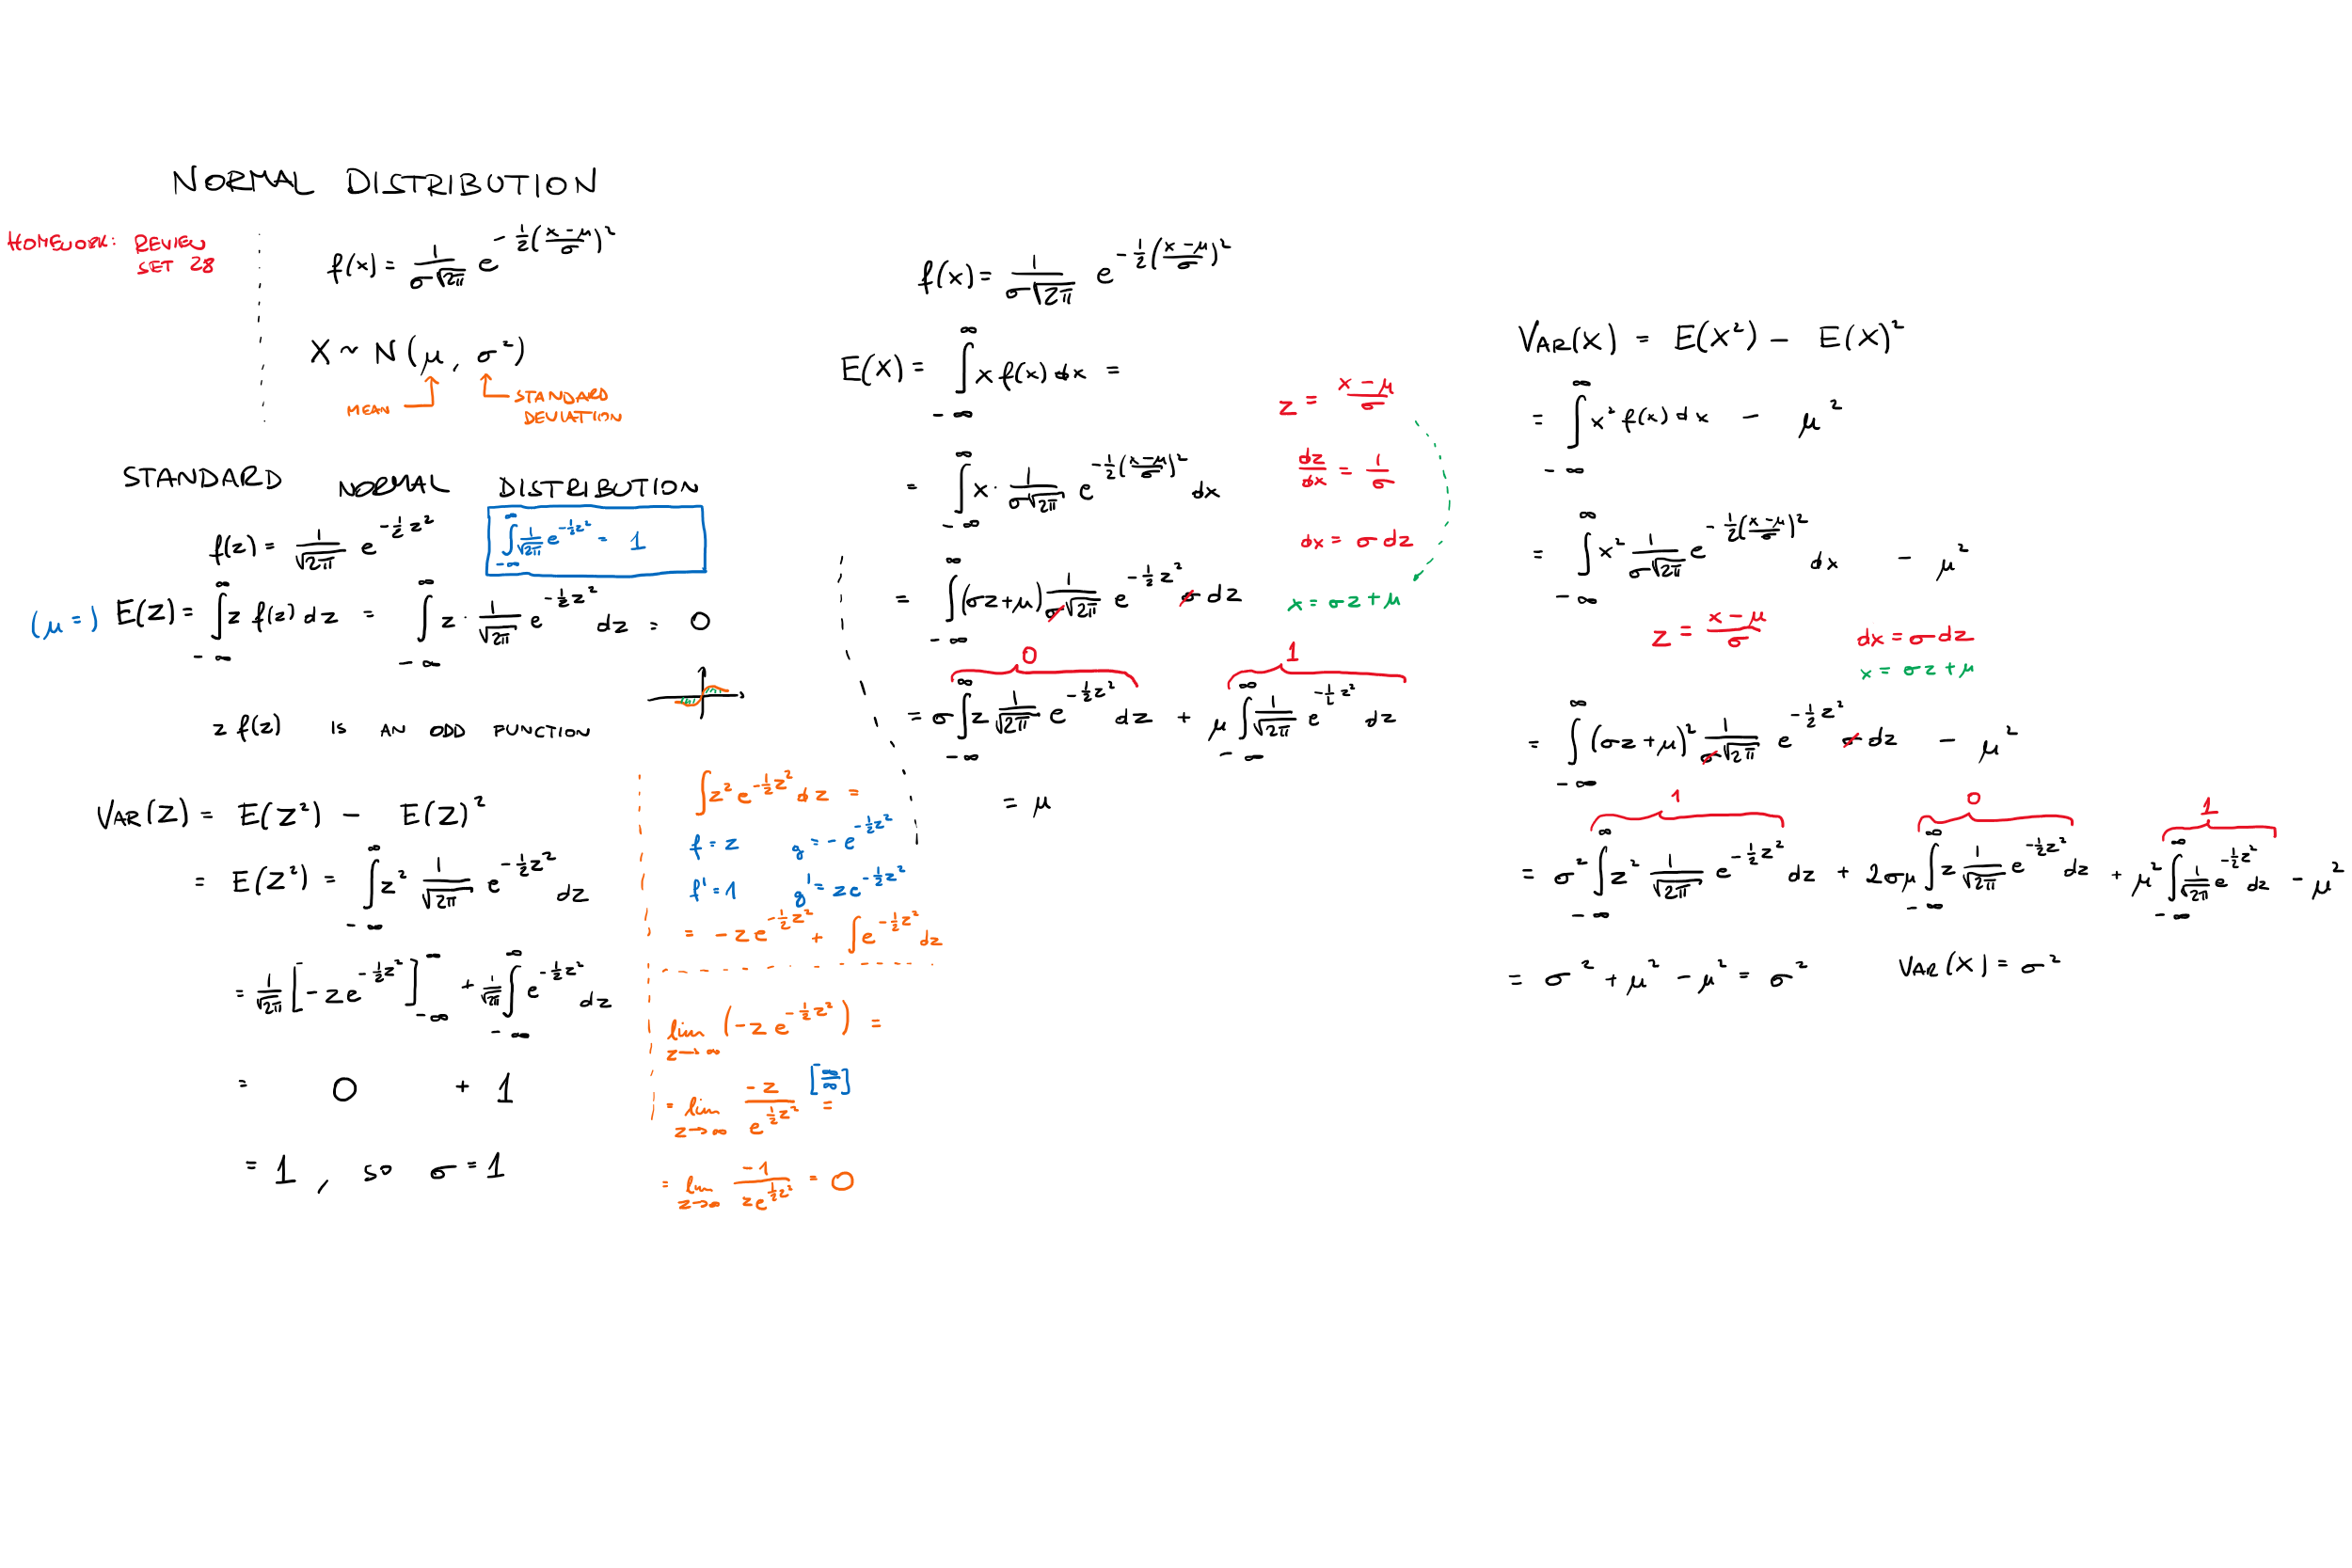 NORMAL DISTRIBUTION
HOMEWORK: REVIEW
SET 28
f(x) = 1/(σ√2π) e^(-1/2((x-μ)/σ)²)
X ~ N(μ, σ²)
MEAN
STANDARD
DEVIATION
STANDARD NORMAL DISTRIBUTION
f(z) = 1/√2π e^(-1/2 z²)
∫_{-∞}^{∞} 1/√2π e^(-1/2 z²) = 1
(μ =) E(Z) = ∫_{-∞}^{∞} z f(z) dz = ∫_{-∞}^{∞} z · 1/√2π e^(-1/2 z²) dz = 0
z f(z) IS AN ODD FUNCTION
VAR(Z) = E(Z²) - E(Z)²
= E(Z²) = ∫_{-∞}^{∞} z² 1/√2π e^(-1/2 z²) dz
= 1/√2π [-z e^(-1/2 z²)]_{-∞}^{∞} + 1/√2π ∫_{-∞}^{∞} e^(-1/2 z²) dz
= 0 + 1
= 1, so σ = 1
∫ z² e^(-1/2 z²) dz =
f = z g = -e^(-1/2 z²)
f' = 1 g' = z e^(-1/2 z²)
= -z e^(-1/2 z²) + ∫ e^(-1/2 z²) dz
lim_{z→∞} (-z e^(-1/2 z²)) =
= lim_{z→∞} -z/e^(1/2 z²) [-∞/∞] =
= lim_{z→∞} -1/(z e^(1/2 z²)) = 0
f(x) = 1/(σ√2π) e^(-1/2((x-μ)/σ)²)
E(X) = ∫_{-∞}^{∞} x f(x) dx =
= ∫_{-∞}^{∞} x · 1/(σ√2π) e^(-1/2((x-μ)/σ)²) dx
= ∫_{-∞}^{∞} (σz+μ) 1/(σ√2π) e^(-1/2 z²) σ dz
0 1
= σ ∫_{-∞}^{∞} z 1/√2π e^(-1/2 z²) dz + μ ∫_{-∞}^{∞} 1/√2π e^(-1/2 z²) dz
= μ
z = (x-μ)/σ
dz/dx = 1/σ
dx = σ dz
x = σz + μ
VAR(X) = E(X²) - E(X)²
= ∫_{-∞}^{∞} x² f(x) dx - μ²
= ∫_{-∞}^{∞} x² 1/(σ√2π) e^(-1/2((x-μ)/σ)²) dx - μ²
z = (x-μ)/σ dx = σ dz
x = σz + μ
= ∫_{-∞}^{∞} (σz+μ)² 1/(σ√2π) e^(-1/2 z²) σ dz - μ²
1 0 1
= σ² ∫_{-∞}^{∞} z² 1/√2π e^(-1/2 z²) dz + 2σμ ∫_{-∞}^{∞} z 1/√2π e^(-1/2 z²) dz + μ² ∫_{-∞}^{∞} 1/√2π e^(-1/2 z²) dz - μ²
= σ² + μ² - μ² = σ² VAR(X) = σ²